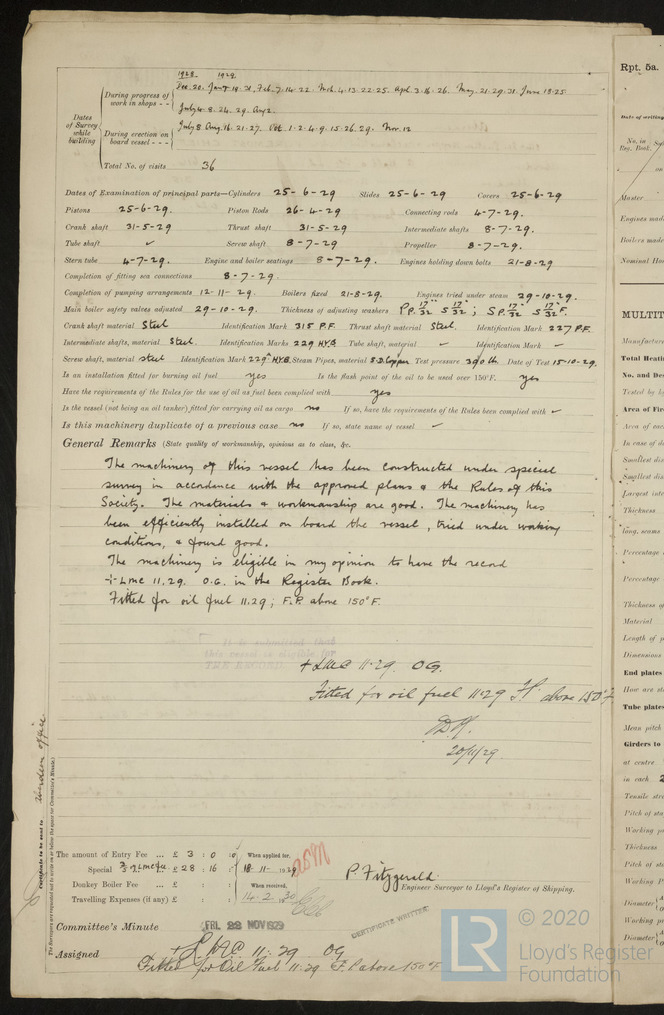 1928 1929
During progress of work in shops - - Dec. 20. Jan 19. 31. Feb. 7. 14. 22. Mch. 4. 13. 22. 25. Apl. 3. 16. 26. May. 21. 29. 31. June 18. 25
July 4. 8. 24. 29. Aug 2.
Dates of Survey while building
During erection on board vessel - - - July 8 Aug. 16. 21. 27. Oct. 1. 2. 4. 9. 15. 26. 29. Nov. 12
Total No. of visits 36
Dates of Examination of principal parts—Cylinders 25-6-29 Slides 25-6-29 Covers 25-6-29
Pistons 25-6-29. Piston Rods 26-4-29 Connecting rods 4-7-29.
Crank shaft 31-5-29 Thrust shaft 31-5-29 Intermediate shafts 8-7-29.
Tube shaft ✓ Screw shaft 8-7-29 Propeller 8-7-29.
Stern tube 4-7-29. Engine and boiler seatings 8-7-29. Engines holding down bolts 21-8-29
Completion of fitting sea connections 8-7-29.
Completion of pumping arrangements 12-11-29. Boilers fixed 21-8-29. Engines tried under steam 29-10-29.
Main boiler safety valves adjusted 29-10-29. Thickness of adjusting washers P P. 17/32 S 17/32 ; S P. 17/32 S 17/32 F.
Crank shaft material Steel Identification Mark 315 P.F. Thrust shaft material Steel. Identification Mark 227 P.F.
Intermediate shafts, material Steel. Identification Marks 229 H.Y.B. Tube shaft, material Identification Mark
Screw shaft, material steel Identification Mark 229A H.Y.B. Steam Pipes, material S.D. Copper. Test pressure 390 lb Date of Test 15-10-29.
Is an installation fitted for burning oil fuel yes Is the flash point of the oil to be used over 150°F. yes
Have the requirements of the Rules for the use of oil as fuel been complied with yes
Is the vessel (not being an oil tanker) fitted for carrying oil as cargo no If so, have the requirements of the Rules been complied with ✓
Is this machinery duplicate of a previous case no If so, state name of vessel ✓
General Remarks (State quality of workmanship, opinions as to class, &c.
The machinery of this vessel has been constructed under special
survey in accordance with the approved plans & the Rules of this
Society. The materials & workmanship are good. The machinery has
been efficiently installed on board the vessel, tried under working
conditions, & found good.
The machinery is eligible in my opinion to have the record
+ LMC 11.29. O.G. in the Register Book.
Fitted for oil fuel 11.29; F.P. above 150°F.
It is submitted that
this vessel is eligible for
THE RECORD
+ LMC 11.29. OG.
Fitted for oil fuel 11.29 F.P. above 150°F
20/11/29
Certificate to be sent to Aberdeen office
(The Surveyors are requested not to write on or below the space for Committee's Minute.)
The amount of Entry Fee ... £ 3 : 0 : 0 When applied for,
Special £ 28 : 16 : 18-11-1929
Donkey Boiler Fee ... £ : : When received,
Travelling Expenses (if any) £ : : 14.2.30
P. Fitzgerald.
Engineer Surveyor to Lloyd's Register of Shipping.
Committee's Minute FRI. 22 NOV 1929
CERTIFICATE WRITTEN
Assigned + LMC 11.29 OG
Fitted for Oil Fuel 11.29 F.P. above 150°F
Rpt. 5a.
Date of writing
No. in Reg. Book.
on
Master
Engines made
Boilers made
Nominal Hor
MULTIT
Manufacture
Total Heati
No. and Des
Tested by h
Area of Fir
Area of each
In case of d
Smallest dis
Smallest dis
Largest inte
Thickness
long. seams
Percentage
Percentage
Thickness of
Material
Length of p
Dimensions
End plates
How are sta
Tube plates
Mean pitch
Girders to
at centre
in each 2
Tensile stre
Pitch of sta
Working p
Thickness
Pitch of sta
Working P
Diameter
Working p
Diameter
LR
© 2020
Lloyd's Register
Foundation